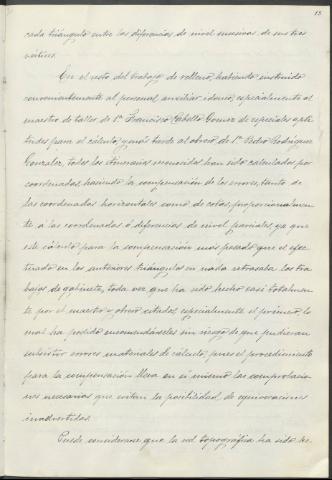 13
cada triángulo entre las diferencias de nivel sucesivas de sus tres
vértices.
En el resto del trabajo de relleno, habiendo instruido
convenientemente al personal auxiliar idóneo, especialmente al
maestro de taller de 1ª Francisco Cabello Gomez de especiales apti-
tudes para el cálculo, y más tarde al obrero de 1ª Pedro Rodriguez
Gonzalez, todos los itinerarios reconocidos han sido calculados por
coordenadas, haciendo la compensación de los errores, tanto de
las coordenadas horizontales como de cotas, proporcionalmen-
te á las coordenadas ó diferencias de nivel parciales, ya que
este cálculo para la compensación más pesado que el efec-
tuado en los anteriores triángulos en nada retrasaba los tra-
bajos de gabinete, toda vez que ha sido hecho casi totalmen-
te por el maestro y obrero citados, especialmente el primero, lo
cual ha podido encomendárseles sin riesgo de que pudieran
subsistir errores materiales de cálculo, pues el procedimiento
para la compensación lleva en sí mismo las comprobacio-
nes necesarias que evitan la posibilidad de equivocaciones
inadvertidas.
Puede considerarse que la red topográfica ha sido he-